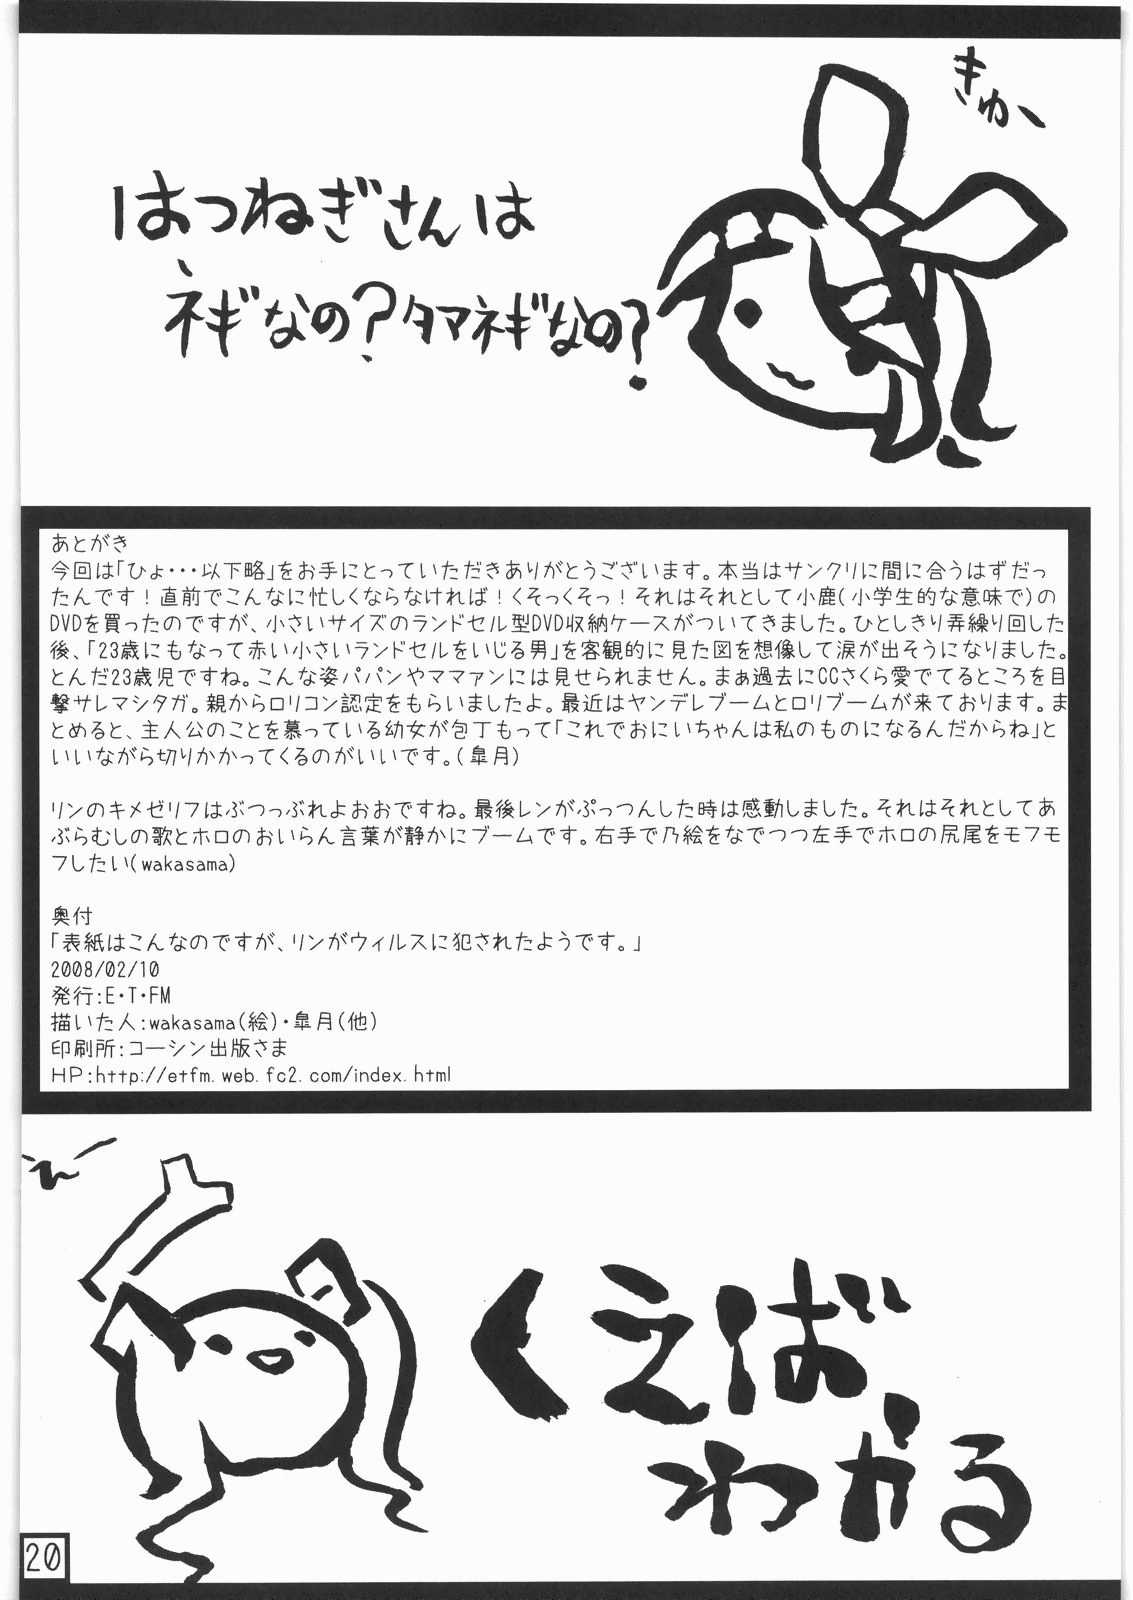 きゅー
はつねぎさんは
ネギなの?タマネギなの?
あとがき
今回は「ひょ・・・以下略」をお手にとっていただきありがとうございます。本当はサンクリに間に合うはずだっ
たんです！直前でこんなに忙しくならなければ！くそっくそっ！それはそれとして小鹿(小学生的な意味で)の
DVDを買ったのですが、小さいサイズのランドセル型DVD収納ケースがついてきました。ひとしきり弄繰り回した
後、「23歳にもなって赤い小さいランドセルをいじる男」を客観的に見た図を想像して涙が出そうになりました。
とんだ23歳児ですね。こんな姿パパンやママァンには見せられません。まぁ過去にCCさくら愛でてるところを目
撃サレマシタガ。親からロリコン認定をもらいましたよ。最近はヤンデレブームとロリブームが来ております。ま
とめると、主人公のことを慕っている幼女が包丁もって「これでおにいちゃんは私のものになるんだからね」と
いいながら切りかかってくるのがいいです。(皐月)
リンのキメゼリフはぶつっぶれよおおですね。最後レンがぷっつんした時は感動しました。それはそれとしてあ
ぶらむしの歌とホロのおいらん言葉が静かにブームです。右手で乃絵をなでつつ左手でホロの尻尾をモフモ
フしたい(wakasama)
奥付
「表紙はこんなのですが、リンがウィルスに犯されたようです。」
2008/02/10
発行:E・T・FM
描いた人:wakasama(絵)・皐月(他)
印刷所:コーシン出版さま
HP:http://etfm.web.fc2.com/index.html
くえば
わかる
20